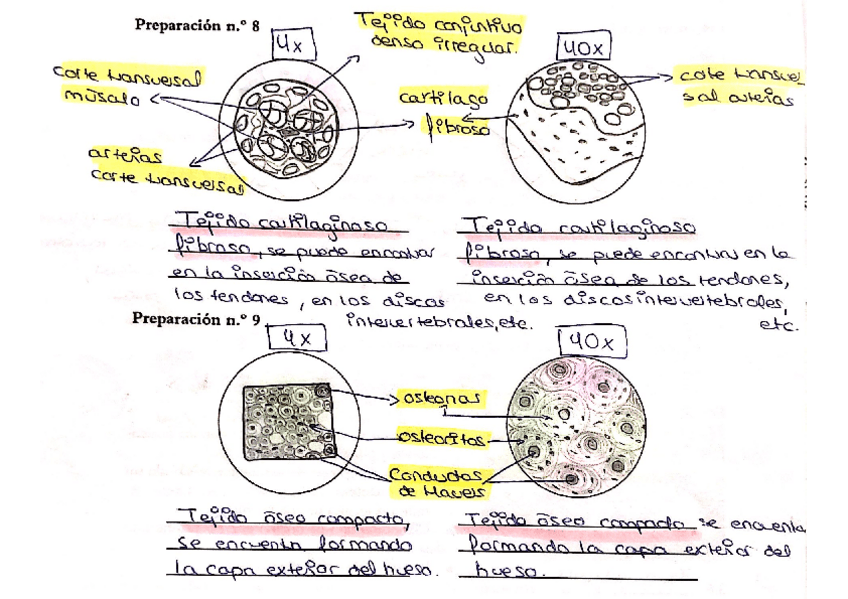 Preparación n.º 8
4x
Tejido conjuntivo
denso irregular.
40x
corte transversal
músculo
cartílago
fibroso
corte transver
sal arterias
arterias
corte transversal
Tejido cartilaginoso
fibroso, se puede encontrar
en la inserción ósea de
los tendones, en los discos
intervertebrales, etc.
Tejido cartilaginoso
fibroso, se puede encontrar en la
inserción ósea de los tendones,
en los discos intervertebrales,
etc.
Preparación n.º 9
4x
40x
osteonas
osteocitos
Conductos
de Havers
Tejido óseo compacto,
se encuentra formando
la capa exterior del hueso.
Tejido óseo compacto se encuentra
formando la capa exterior del
hueso.